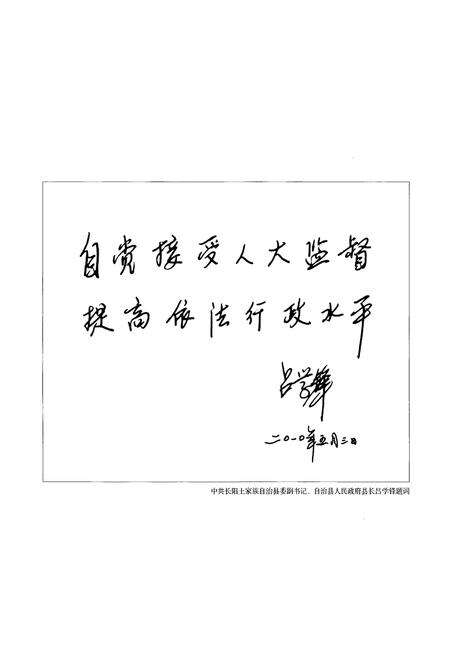 自觉接受人大监督
提高依法行政水平
吕学锋
二〇一〇年五月三日
中共长阳土家族自治县委副书记、自治县人民政府县长吕学锋题词